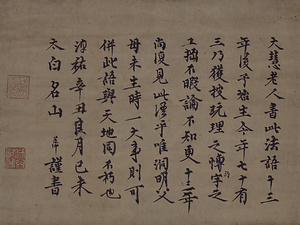 大慧老人書此法語十三
年後予始生今年七十有
三乃獲披玩理之精字之
工拙不暇論不知更十三年
尚復見此語乎唯洞明父
母未生時一大事則可
併此語與天地同不朽也
淳祐辛丑良月己未
太白名山 謹書